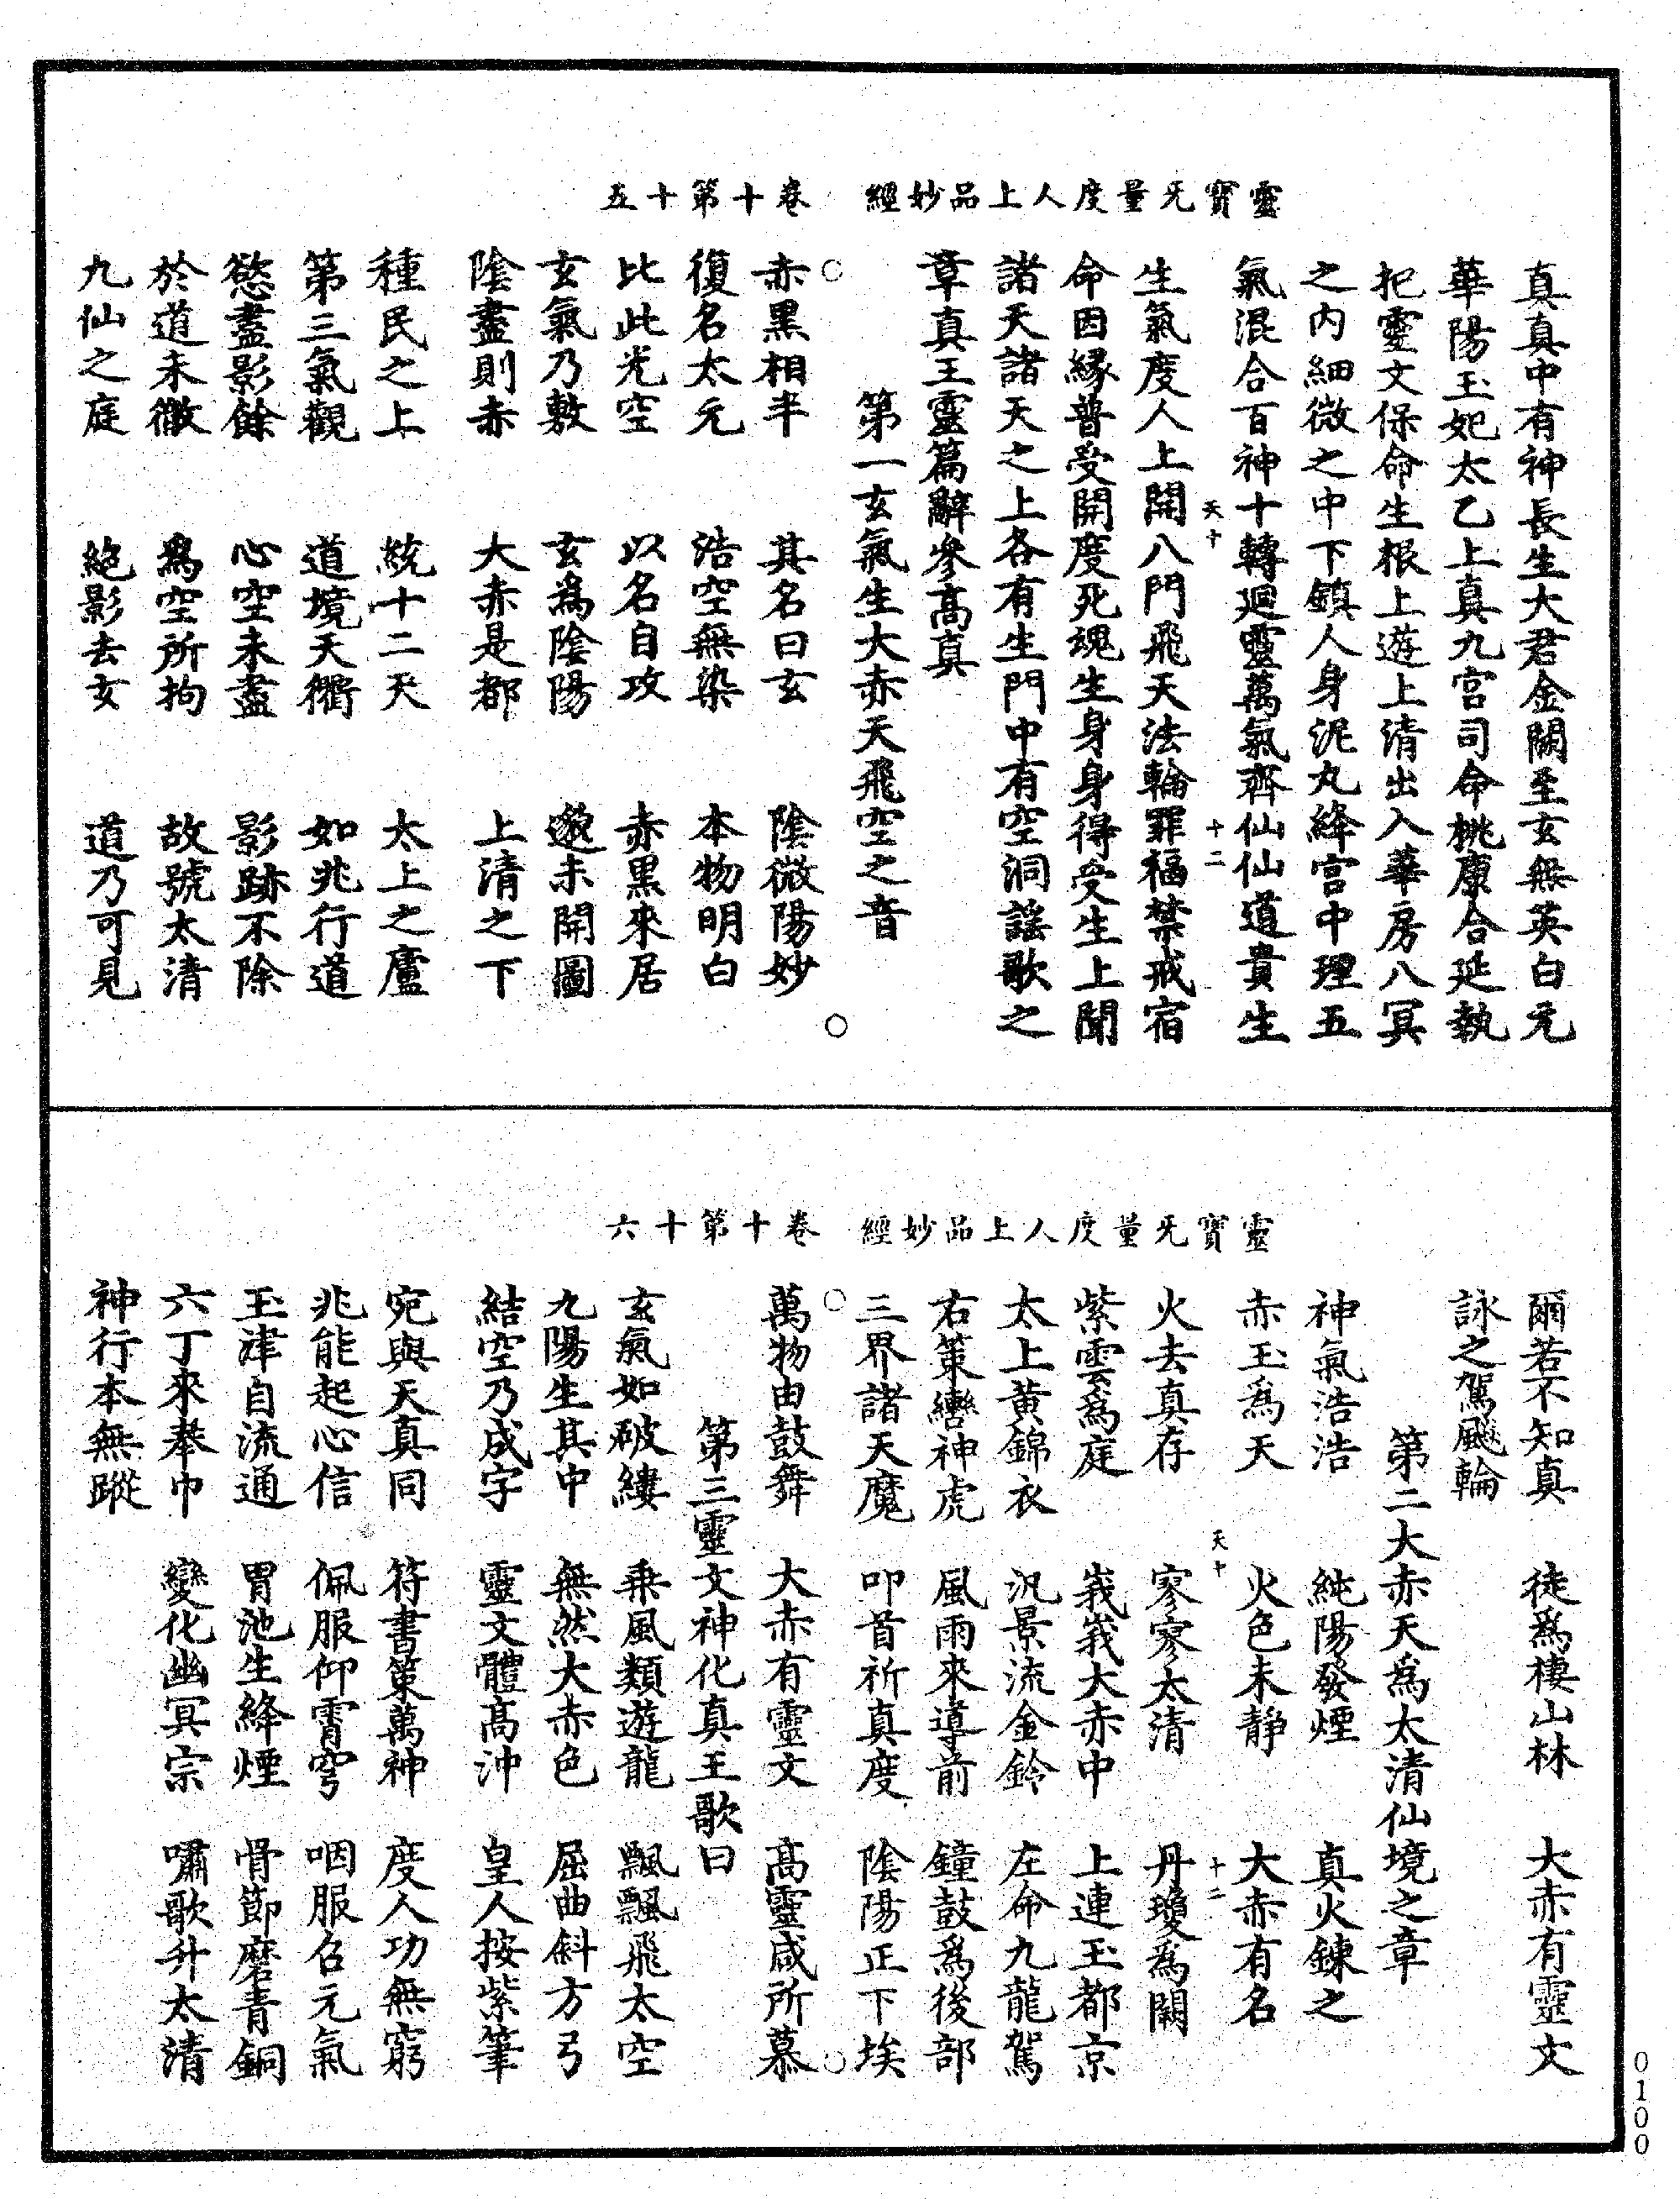 靈寶无量度人上品妙經　卷十第十五
真真中有神長生大君金闕至玄無英白元
華陽玉妃太乙上真九宮司命桃康合延執
把靈文保命生根上遊上清出入華房八冥
之內細微之中下鎮人身泥丸絳宮中理五
氣混合百神十轉迴靈萬氣齊仙仙道貴生
天十　十二
生氣度人上開八門飛天法輪罪福禁戒宿
命因緣普受開度死魂生身身得受生上聞
諸天諸天之上各有生門中有空洞謡歌之
章真王靈篇辭參高真
第一玄氣生大赤天飛空之音
赤黑相半　其名曰玄　陰微陽妙
復名太元　浩空無染　本物明白
比此光空　以名自攻　赤黒來居
玄氣乃敷　玄為陰陽　邈未開圖
陰盡則赤　大赤是都　上清之下
種民之上　統十二天　太上之廬
第三氣觀　道境天衢　如兆行道
慾盡影餘　心空未盡　影跡不除
於道未徹　為空所拘　故號太清
九仙之庭　絕影去玄　道乃可見
靈寶无量度人上品妙經　卷十第十六
爾若不知真　徒為棲山林　大赤有靈文
詠之駕飈輪
第二大赤天為太清仙境之章
神氣浩浩　純陽發煙　真火鍊之
赤玉為天　火色未靜　大赤有名
天十　十二
火去真存　寥寥太清　丹瓊為闕
紫雲為庭　峩峩大赤中　上連玉都京
太上黃錦衣　汎景流金鈴　左命九龍駕
右策轡神虎　風雨來導前　鐘鼓為後部
三界諸天魔　叩首祈真度　陰陽正下埃
萬物由鼓舞　大赤有靈文　高靈咸所慕
第三靈文神化真王歌曰
玄氣如破縷　乗風類遊龍　飄飄飛太空
九陽生其中　無然大赤色　屈曲斜方弓
結空乃成字　靈文體高沖　皇人按紫筆
宛與天真同　符書策萬神　度人功無窮
兆能起心信　佩服仰霄穹　咽服召元氣
玉津自流通　胃池生絳煙　骨節磨青銅
六丁來奉巾　變化幽冥宗　嘯歌升太清
神行本無蹤
0100